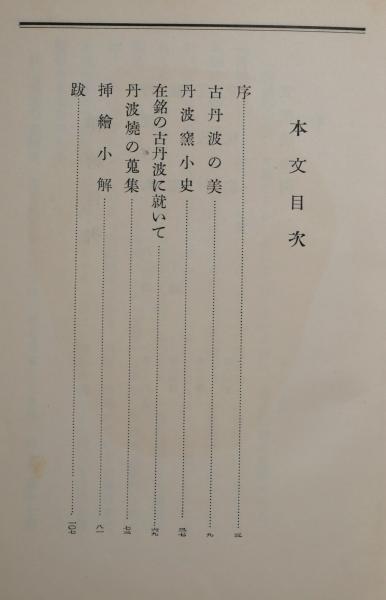 本文目次
序……………三
古丹波の美……………九
丹波窯小史……………四七
在銘の古丹波に就いて……………六九
丹波燒の蒐集……………七三
挿繪小解……………八一
跋……………一〇七